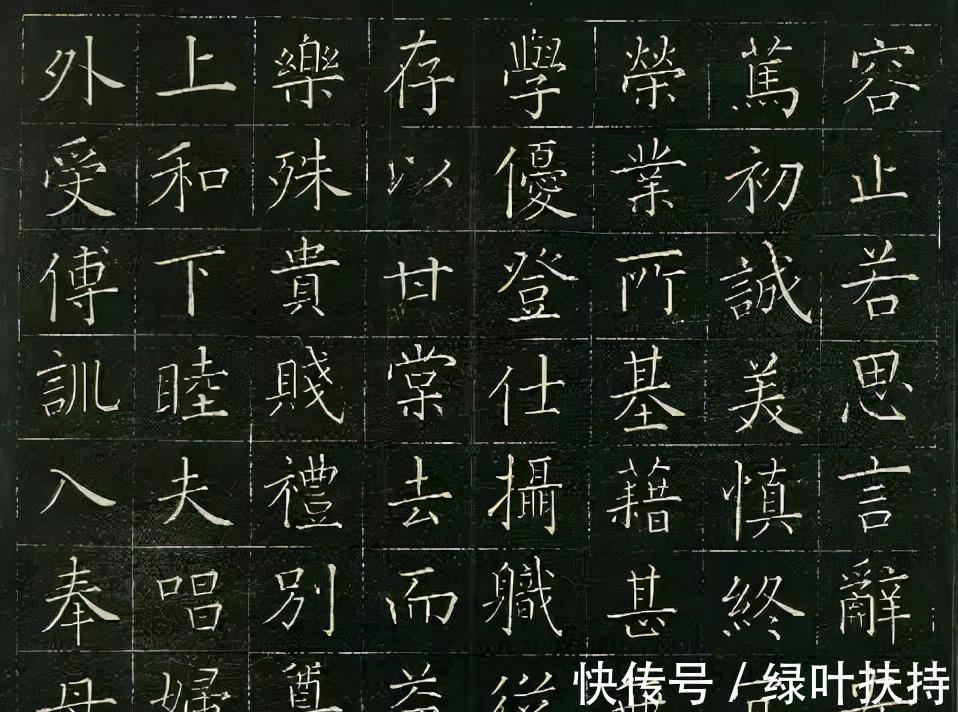 容止若思言辭
篤初誠美慎終
榮業所基藉甚
學優登仕攝職從
存以甘棠去而益
樂殊貴賤禮別尊
上和下睦夫唱婦
外受傅訓入奉母
快传号/绿叶扶持